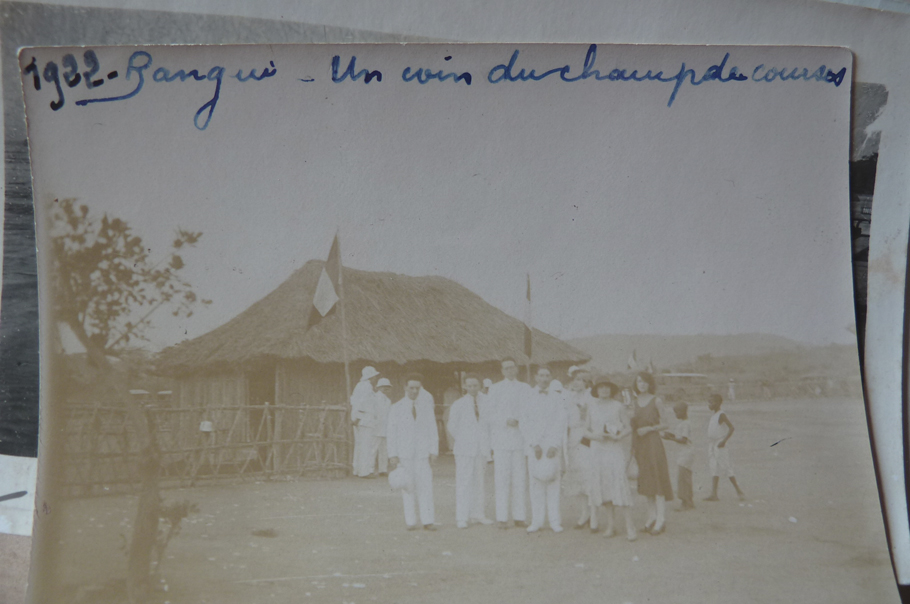 1932 - Bangui - Un coin du champ de courses